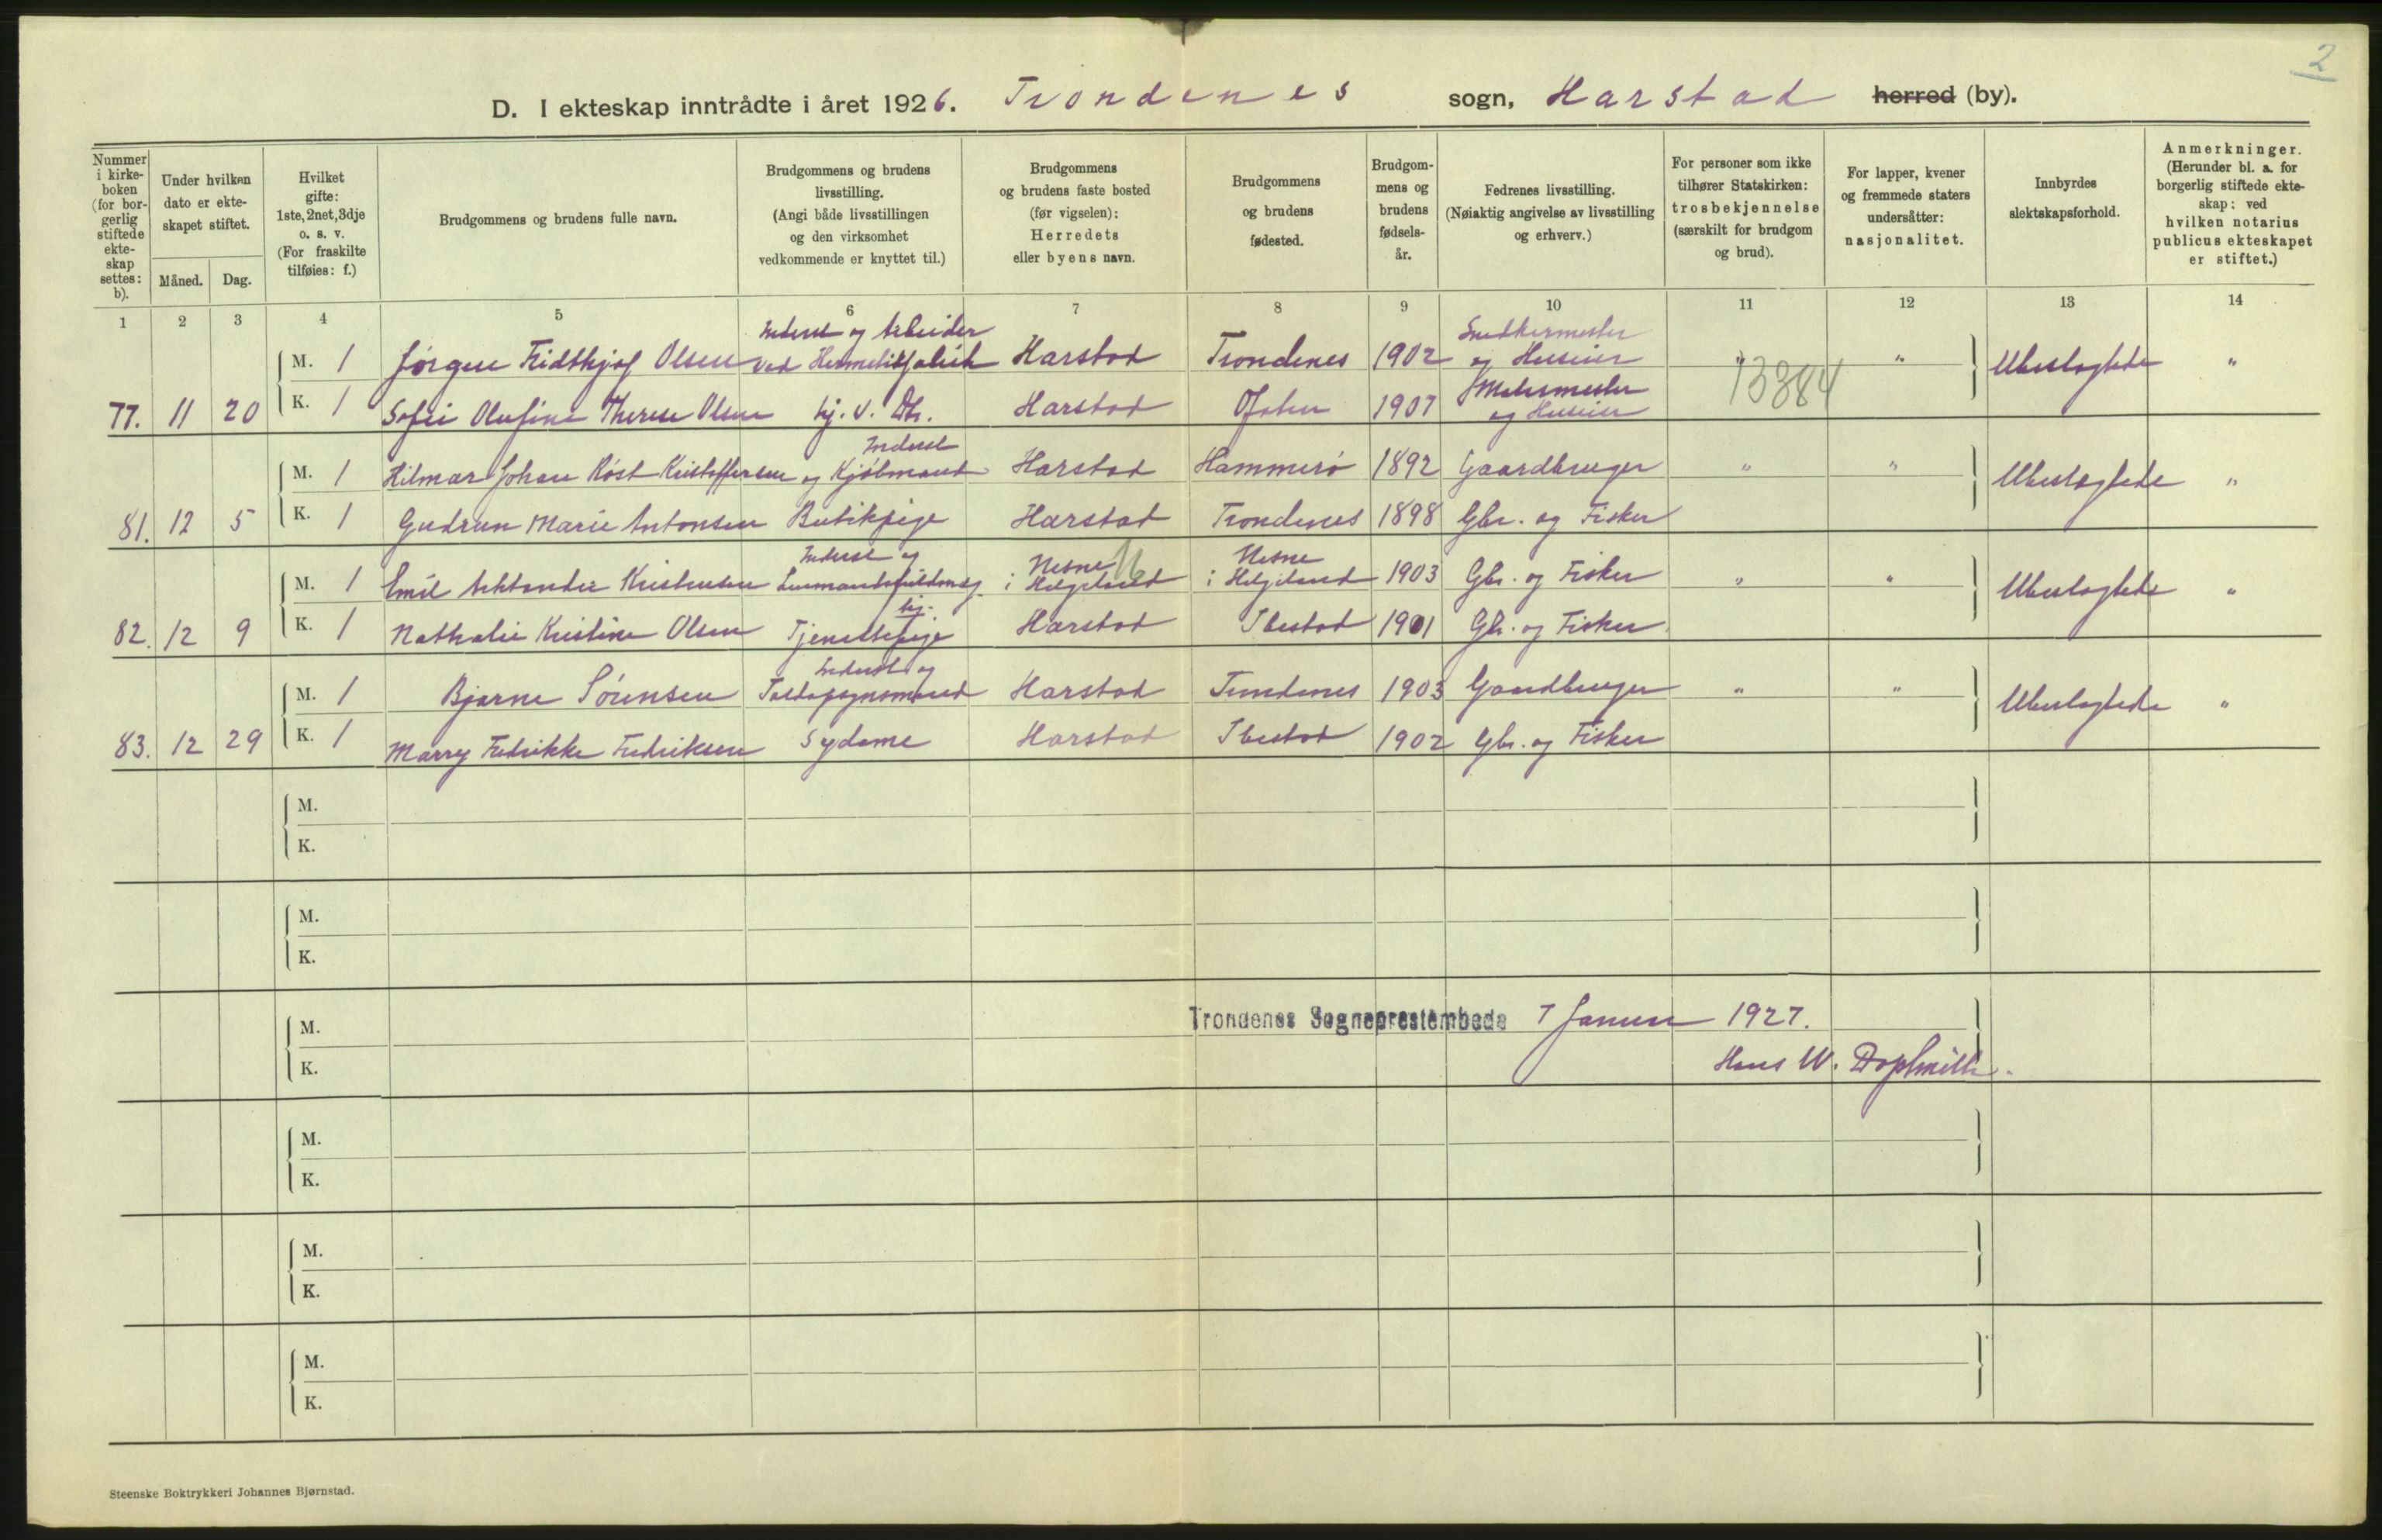 2
D. I ekteskap inntrådte i året 1926. Trondenes sogn, Harstad herred (by).
Nummer i kirke-boken (for bor-gerlig stiftede ekte-skap settes: b).
Under hvilken dato er ekte-skapet stiftet.
Måned. Dag.
Hvilket gifte: 1ste, 2net, 3dje o. s. v. (For fraskilte tilføies: f.)
Brudgommens og brudens fulle navn.
Brudgommens og brudens livsstilling. (Angi både livsstillingen og den virksomhet vedkommende er knyttet til.)
Brudgommens og brudens faste bosted (før vigselen): Herredets eller byens navn.
Brudgommens og brudens fødested.
Brudgom-mens og brudens fødsels-år.
Fedrenes livsstilling. (Nøiaktig angivelse av livsstilling og erhverv.)
For personer som ikke tilhører Statskirken: trosbekjennelse (særskilt for brudgom og brud).
For lapper, kvener og fremmede staters undersåtter: nasjonalitet.
Innbyrdes slektskapsforhold.
Anmerkninger. (Herunder bl. a. for borgerlig stiftede ekte-skap: ved hvilken notarius publicus ekteskapet er stiftet.)
1 2 3 4 5 6 7 8 9 10 11 12 13 14
Inderst og Arbeider Snedkermester
M. 1 Jørgen Fridthjof Olsen ved Hermetikfabrik Harstad Trondenes 1902 og Huseier " " Ubeslægtede "
Malermester 13884
77. 11 20 K. 1 Sofie Olufine Therese Olsen hj. v. Dtr. Harstad Ofoten 1907 og Huseier
Inderst
M. 1 Hilmar Johan Røst Kristoffersen og Kjølmand Harstad Hammerø 1892 Gaardbruger " " Ubeslægtede "
81. 12 5 K. 1 Gudrun Marie Antonsen Butikpige Harstad Trondenes 1898 Gbr. og Fisker
Inderst og Nesne Nesne
M. 1 Emil Arktander Kristensen Lensmandsfuldmæg. i Helgeland i Helgeland 1903 Gbr. og Fisker " " Ubeslægtede "
hj.
82. 12 9 K. 1 Nathalie Kristine Olsen Tjenestepige Harstad Ibestad 1901 Gbr. og Fisker
Inderst og
M. 1 Bjarne Sørensen Toldopsynsmand Harstad Trondenes 1903 Gaardbruger " " Ubeslægtede "
83. 12 29 K. 1 Marry Fredrikke Fredriksen Sydame Harstad Ibestad 1902 Gbr. og Fisker
M.
K.
M.
K.
Trondenes Sogneprestembede 7 Januar 1927.
M.
Hans W.
K.
M.
K.
M.
K.
M.
K.
Steenske Boktrykkeri Johannes Bjørnstad.